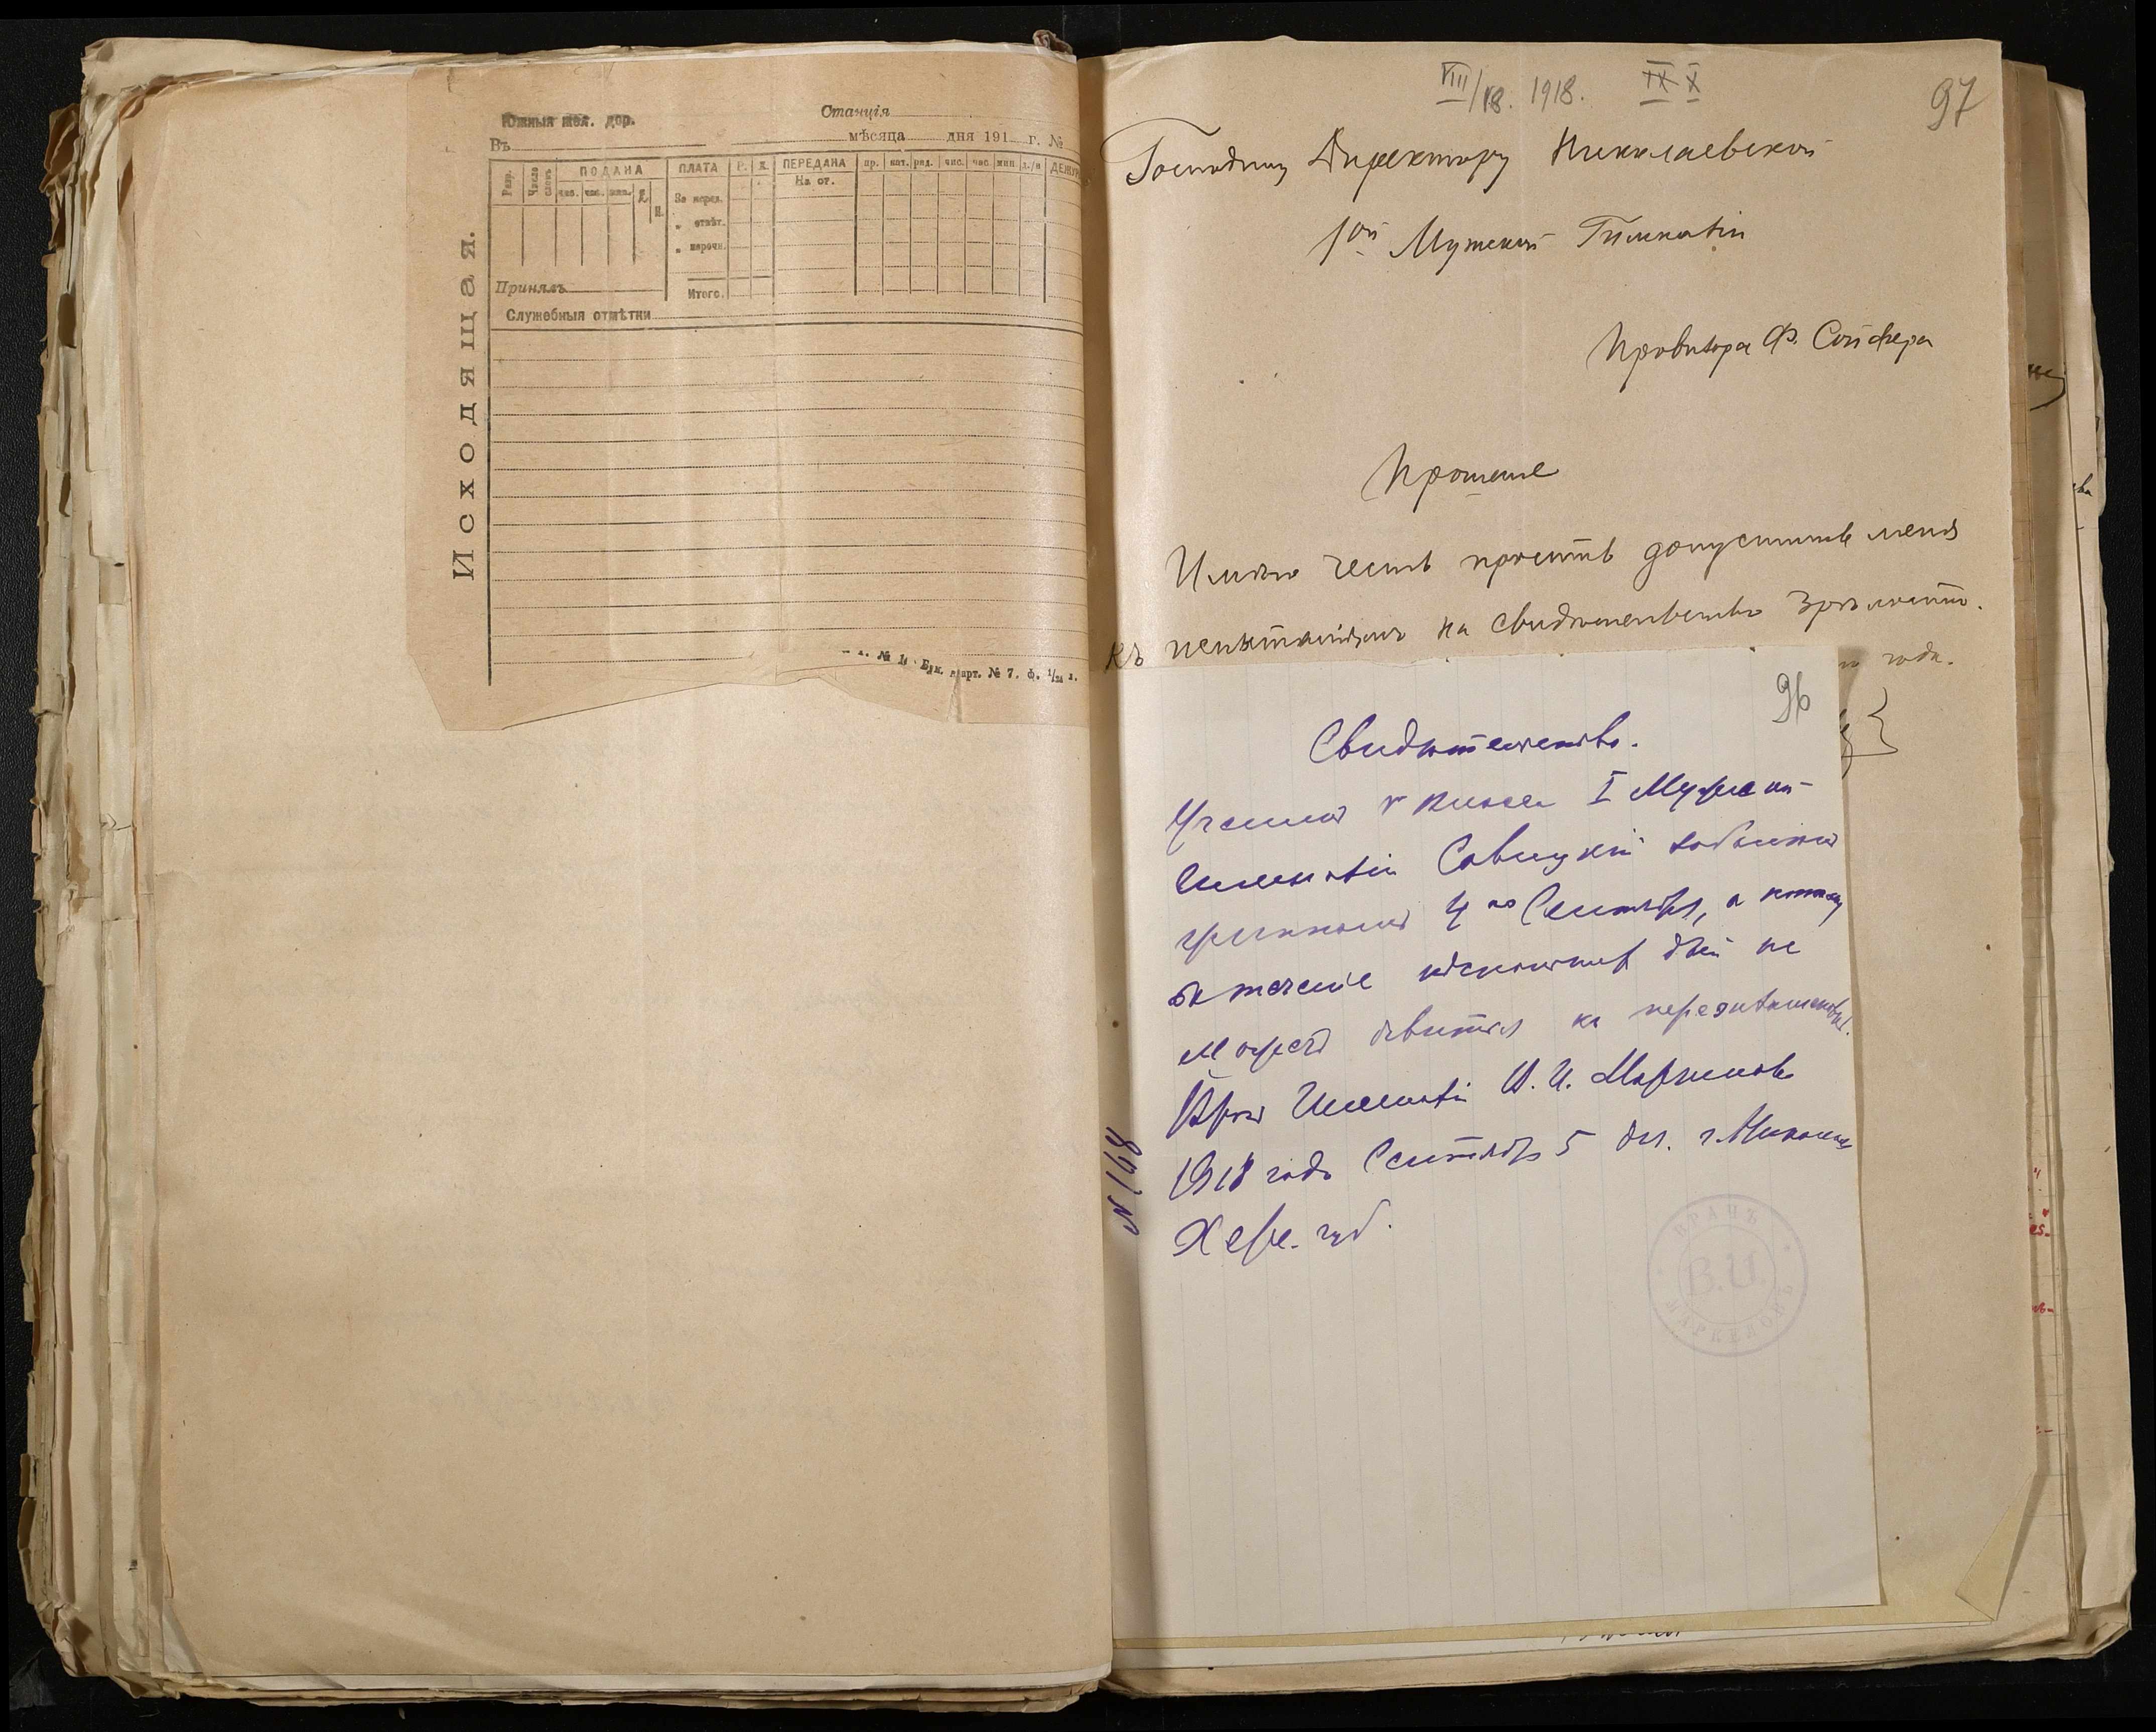 Южныя жел. дор.
Станція
Въ мѣсяца дня 191 г. №
Разр. Число словъ ПОДАНА ПЛАТА Р. К. ПЕРЕДАНА пр. кат. ряд. чис. час. мин. д./н ДЕЖУР
чис. час. мин. На от.
За перед.
„ отвѣт.
„ нарочн.
Принялъ Итого.
Служебныя отмѣтки
Исходящая.
№ 1 Бук. карт. № 7. ф. 1/24 л.
VIII/18. 1918. IX X
97
Господину Директору Николаевской
1ой Мужской Гимназіи
Провизора Ф. Сойфера
Прошеніе
Имѣю честь просить допустить меня
къ испытаніямъ на свидѣтельство зрѣлости.
года.
96
Свидѣтельство.
Ученикъ V класса I Мужской
Гимназіи Савицкій заболѣлъ
гриппомъ 4го Сентября, а потому
въ теченіе нѣсколькихъ дней не
можетъ явиться на переэкзаменовку.
Врачъ Гимназіи В. И. Маркеловъ
1918 года Сентября 5 дня. г. Николаевъ
Херс. губ.
N 168
ВРАЧЪ
В.И.
МАРКЕЛОВЪ